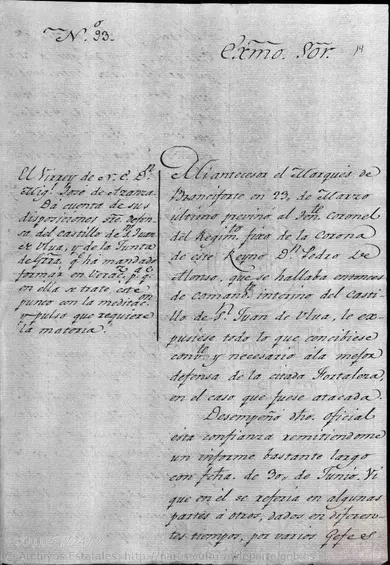 N.º 93.
Exmo. Sor.
El Virrey de N. E. Dn.
Migl. José de Azanza.
Da cuenta de sus
disposiciones sre. defen-
sa del castillo de Sn. Juan
de Ulua, y de la Junta
de Grra. q. ha mandado
formar en Veracz. a fin de q.
en ella se trate este
punto con la meditacon.
y pulso que requiere
la materia.
Mi antecesor el Marqués de
Branciforte en 23, de Marzo
ultimo previno al Tente. Coronel
del Regimto. fixo de la Corona
de este Reyno Dn. Pedro de
Alonso, que se hallaba entonces
de comandte. interino del Casti-
llo de Sn. Juan de Ulua, le ex-
pusiese todo lo que concibiese
convte. y necesario ala mejor
defensa de la citada Fortaleza,
en el caso que fuese atacada.
Desempeñó dho. oficial
esta confianza remitiendome
un informe bastante largo
con fcha. de 30, de Junio. Vi
que en él se referia en algunas
partes á otros, dados en diferen-
tes tiempos, por varios Gefes